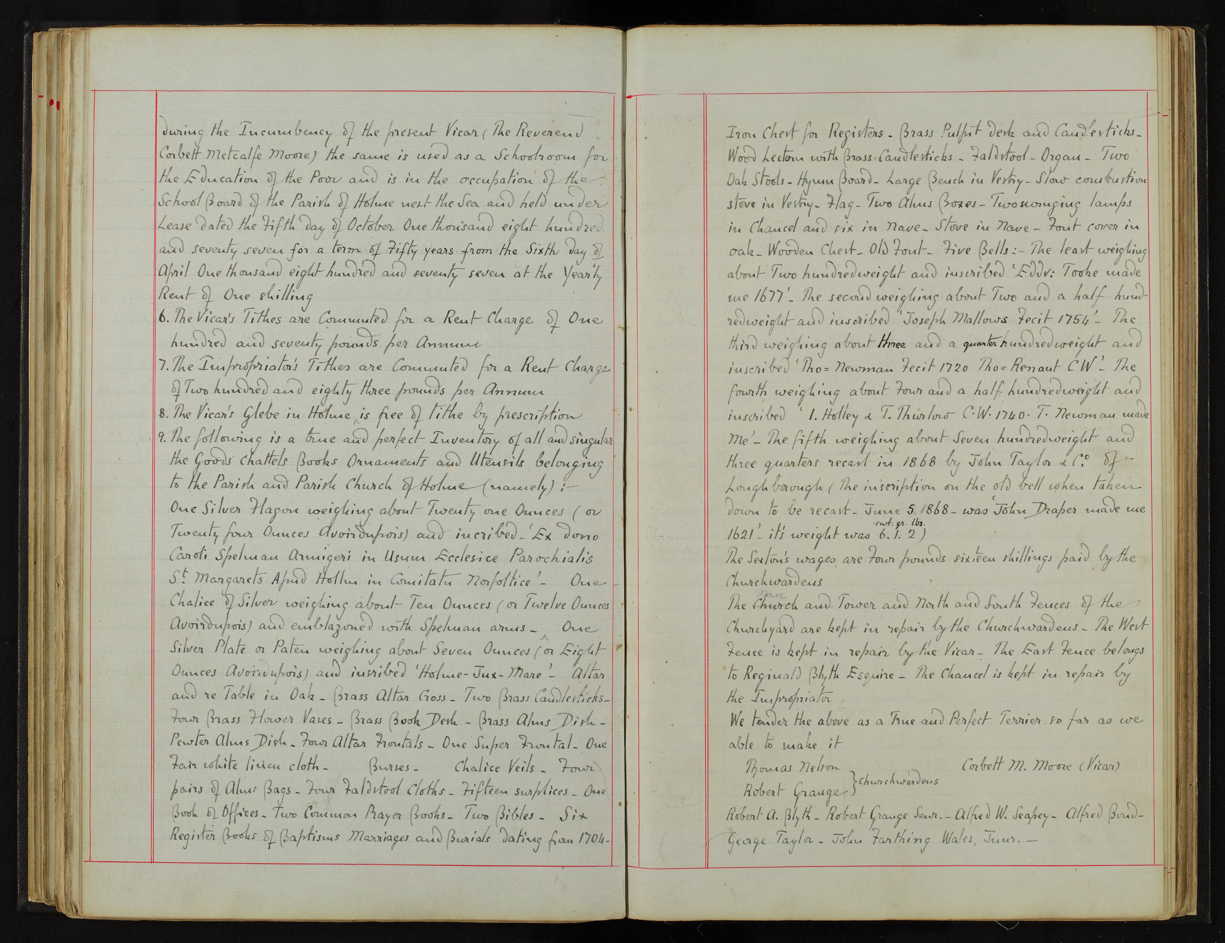 during the Incumbency of the present Vicar (The Reverend
Corbett Metcalfe Moore) the same is used as a Schoolroom for
the Education of the Poor and is in the occupation of the
School Board of the Parish of Holme next the Sea and held under
Lease dated the Fifth day of October One thousand eight hundred
and seventy seven for a term of Fifty years from the Sixth day of
April One thousand eight hundred and seventy seven at the Yearly
Rent of One shilling
6. The Vicar's Tithes are Commuted for a Rent Charge of One
hundred and seventy pounds per Annum
7. The Impropriator's Tithes are Commuted for a Rent Charge
of Two hundred and eighty three pounds per Annum
8. The Vicar's Glebe in Holme, is free of tithe by prescription
9. The following is a true and perfect Inventory of all and singular
the Goods Chattels Books Ornaments and Utensils belonging
to the Parish and Parish Church of Holme (namely) :-
One Silver Flagon weighing about Twenty one Ounces (or
Twenty four Ounces Avoirdupois) and incribed - 'Ex dono
Caroli Spelman Armigeri in Usum Ecclesice Parochialis
St. Margarets Apud Hollm in Comitatu Norfoltice' - One
Chalice of Silver weighing about Ten Ounces (or Twelve Ounces
Avoirdupois) and emblazoned with Spelman arms - One
Silver Plate or Paten weighing about Seven Ounces (or Eight
Ounces Avoirdupois) and inscribed 'Holme-Jux-Mare' - Altar
and re Table in Oak - Brass Altar Cross - Two Brass Candlesticks -
Four Brass Flower Vases - Brass Book Desk - Brass Alms Dish -
Pewter Alms Dish - Four Altar Frontals - One Super Frontal - One
Fair white linen cloth - Burses - Chalice Veils - Four
pairs of Alms Bags - Four Faldstool Cloths - Fifteen surplices - One
Book of Offices - Two Common Prayer Books - Two Bibles - Six
Register Books of Baptisms Marriages and Burials dating from 1704 -
Iron Chest for Registers - Brass Pulpit desk and Candlesticks -
Wood Lectern with Brass Candlesticks - Faldstool - Organ - Two
Oak Stools - Hymn Board - Large Bench in Vestry - Slow combustion
stove in Vestry - Flag - Two Alms Boxes - Two swinging lamps
in Chancel and six in Nave - Stove in Nave - Font cover in
oak - Wooden Chest - Old Font - Five Bells :- The least weighing
about Two hundredweight and inscribed 'Eddv: Tooke made
me 1677' - The second weighing about Two and a half hund-
redweight and inscribed 'Joseph Mallows Fecit 1754' - The
third weighing about three and a quarter hundredweight and
inscribed 'Tho= Newman Fecit 1720 Tho= Renaut C W' - The
fourth weighing about Four and a half hundredweight and
inscribed ' I. Holley & T. Thurlow C. W. 1740. T. Newman made
Me' - The fifth weighing about Seven hundredweight and
three quarters recast in 1868 by John Taylor & Co. of -
Loughborough (The inscription on the old bell when taken
down to be recast - June 5. 1868 - was 'John Draper made me
1621' - it's weight was 6. 1. 2)
cwt. qr. lbs.
The Sexton's wages are Four pounds sixteen shillings paid by the
Churchwardens
The Church and Tower and North and South Fences of the
Churchyard are kept in repair by the Churchwardens - The West
Fence is kept in repair by the Vicar - The East Fence belongs
to Reginald Blyth Esquire - The Chancel is kept in repair by
the Impropriator
We tender the above as a True and Perfect Terrier so far as we
able to make it
Thomas Nelson Corbett M. Moore (Vicar)
} Churchwardens
Robert Grange
Robert A. Blyth - Robert Grange Senr. - Alfred W. Seapey - Alfred Bond -
George Taylor - John Farthing Wales, Junr. -